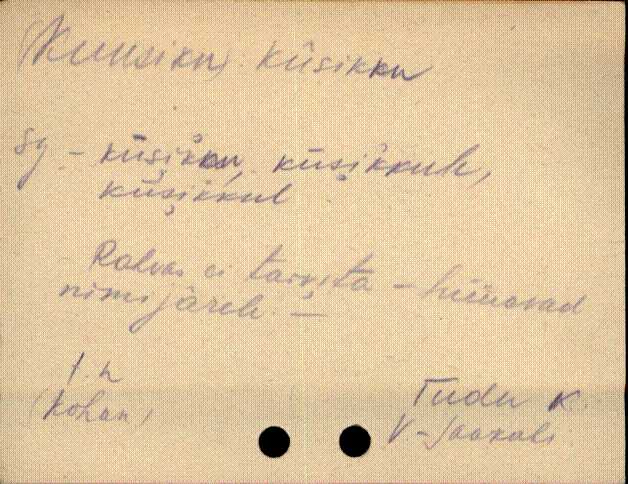 (Kuusiku) kūsikku
sg - kūsikku, kūsikkuh,
kūsikkul
Rahvas ei tarvita - hüüavad
nimi järele. -
t. n
(Kohan)
Tudu K
V-Jaakobi